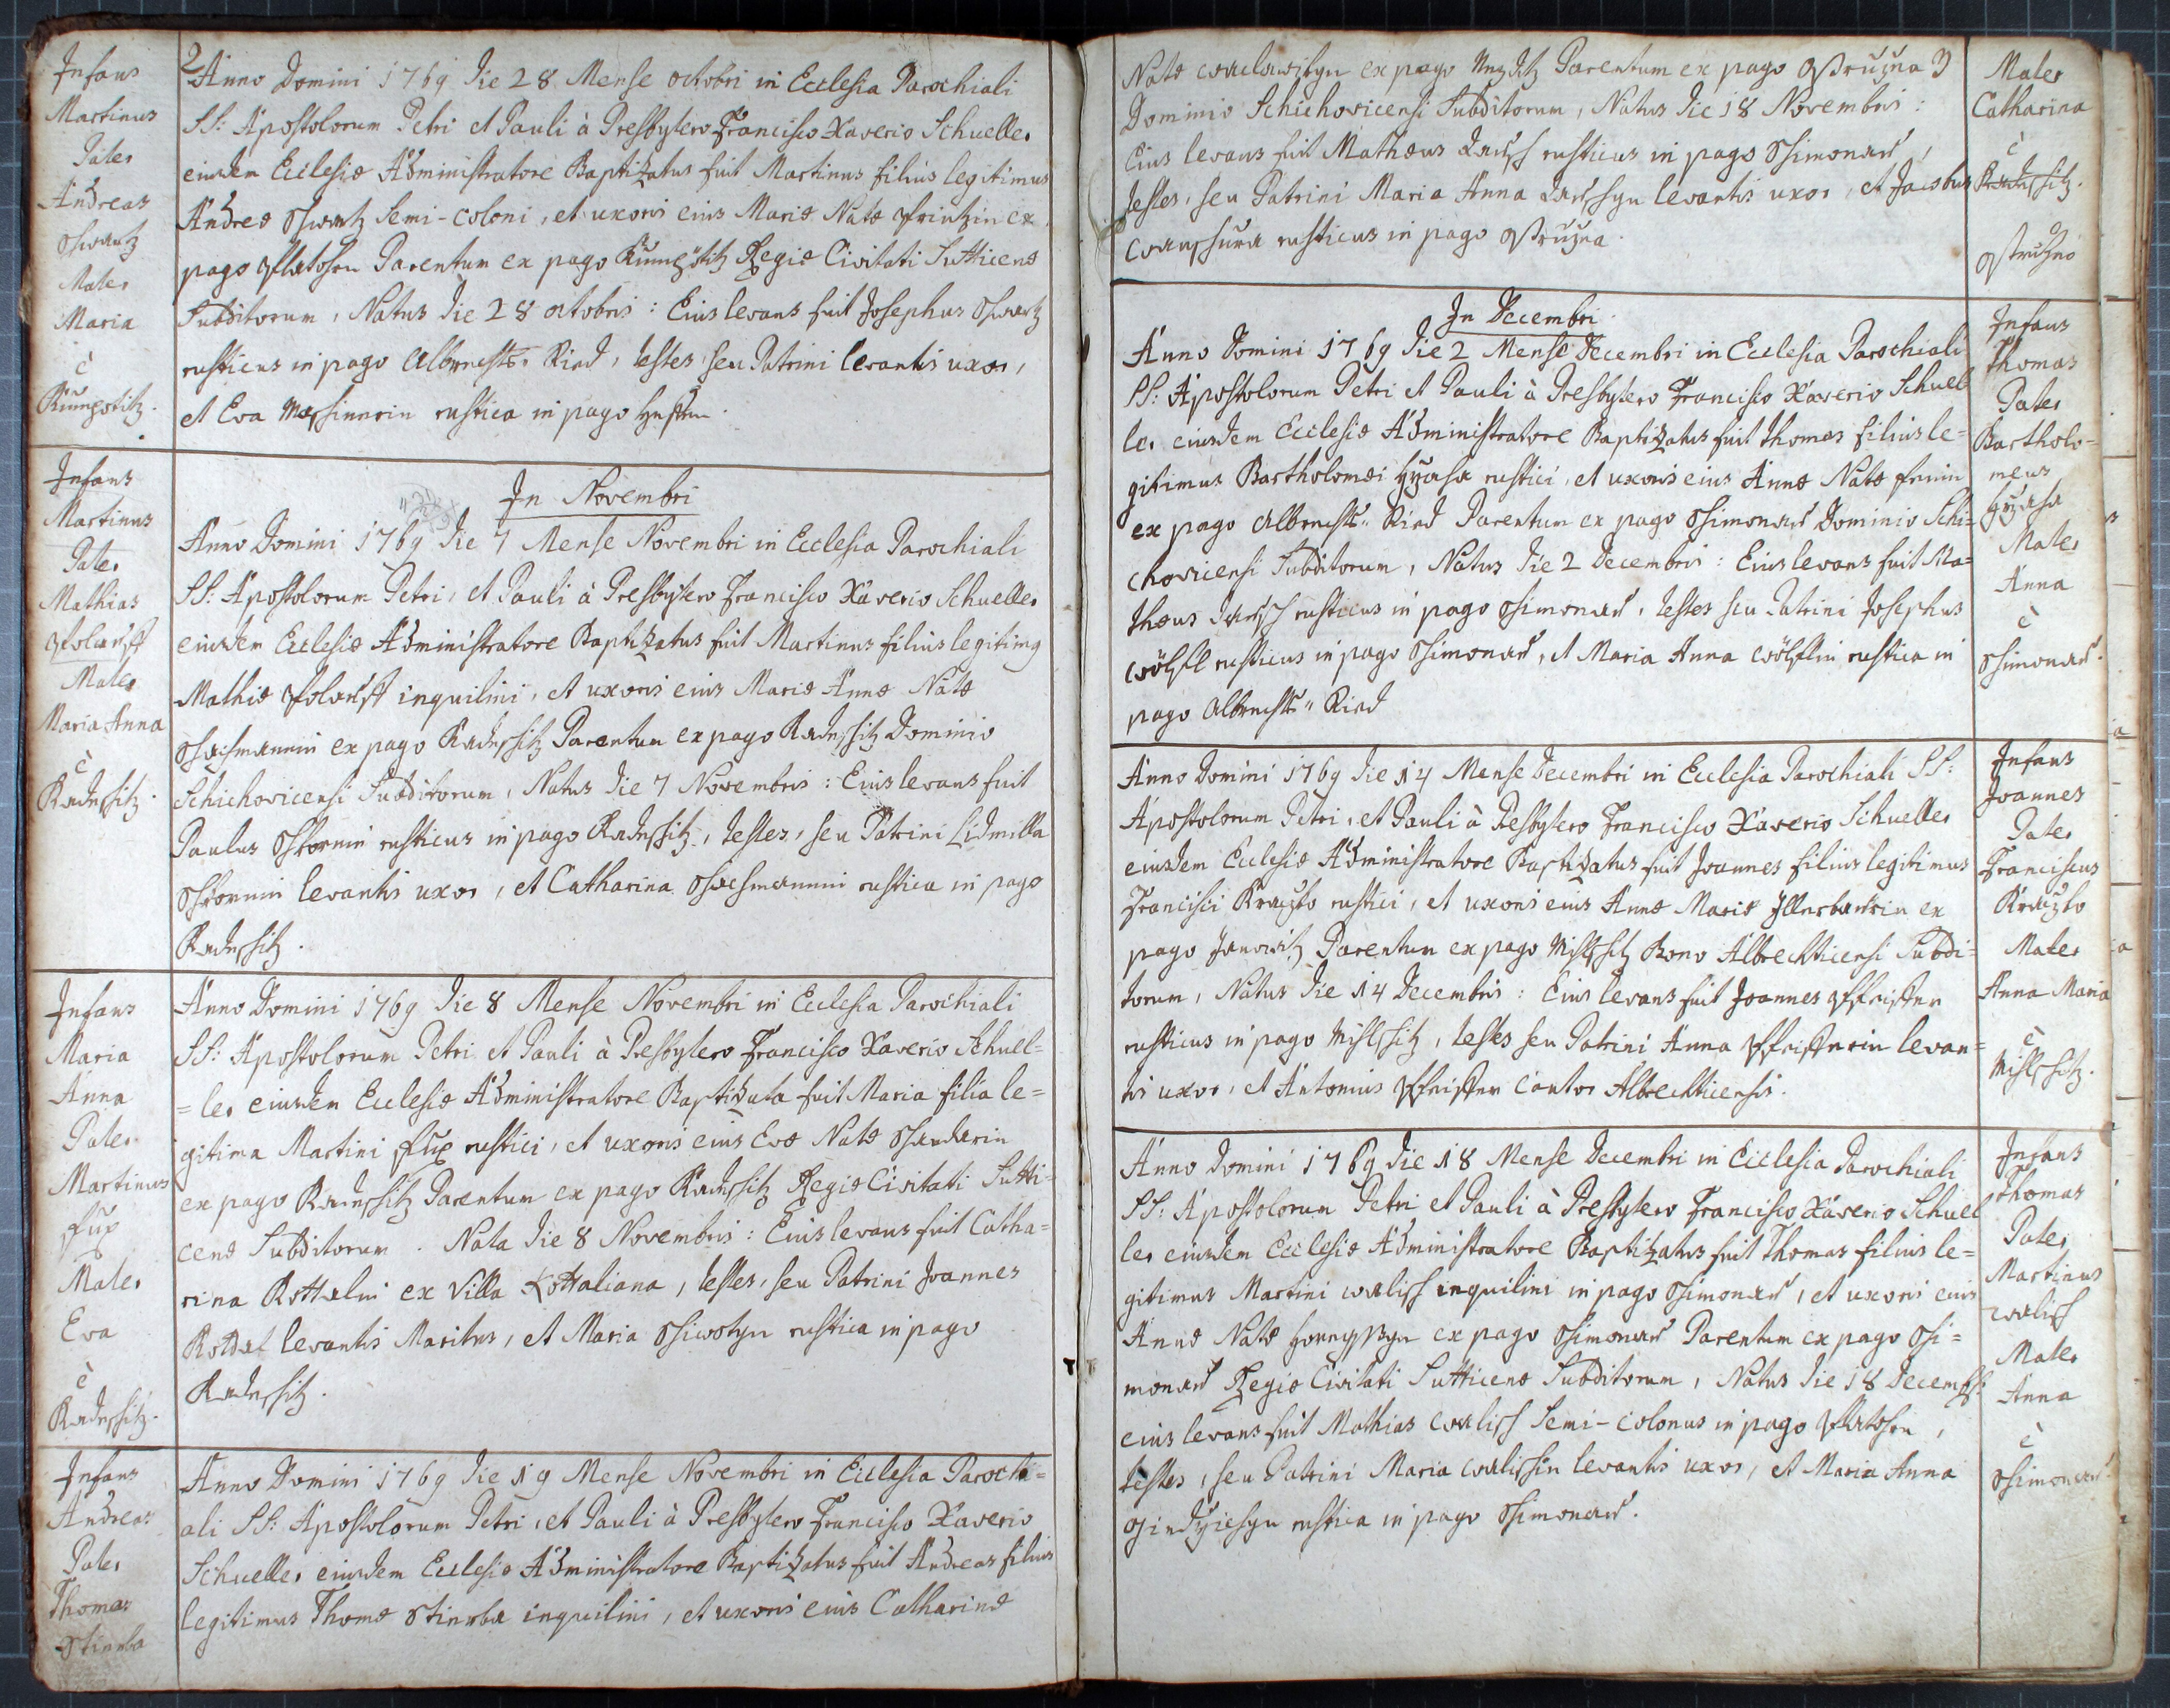 2
Infans
Martinus
Pater
Andreas
Mater
Maria
è
Kumpotitz.
Anno Domini 1769 Die 28 Mense octobri in Ecclesia Parochiali
SS: Apostolorum Petri et Pauli à Presbytero Francisco Xaverio Schueller
eiusdem Ecclesiæ Administratore Baptizatus fuit Martinus filius legitimus
Andreæ Semi-coloni, et uxoris eius Mariæ Natæ ex
pago Parentum ex pago Regiæ Civitati Sutticenæ
Subditorum, Natus Die 28 octobris: Eius levans fuit Josephus
rusticus in pago Albrechts-Ried, testes seu Patrini levantis uxor,
et Eva rustica in pago
Infans
Martinus
Pater
Mathias
Mater
Maria Anna
è
Radessitz.
In Novembri
Anno Domini 1769 Die 7 Mense Novembri in Ecclesia Parochiali
SS: Apostolorum Petri, et Pauli à Presbytero Francisco Xaverio Schueller
eiusdem Ecclesiæ Administratore Baptizatus fuit Martinus filius legitimg
Mathiæ inquilini, et uxoris eius Mariæ Annæ Natæ
ex pago Radessitz Parentum ex pago Radessitz Dominio
Schichovicensi Subditorum, Natus Die 7 Novembris: Eius levans fuit
Paulus rusticus in pago Radessitz, testes, seu Patrini Lidmilla
levantis uxor, et Catharina rustica in pago
Radessitz.
Infans
Maria
Anna
Pater
Martinus
Fux
Mater
Eva
è
Radessitz.
Anno Domini 1769 Die 8 Mense Novembri in Ecclesia Parochiali
SS: Apostolorum Petri et Pauli à Presbytero Francisco Xaverio Schuel=
=ler eiusdem Ecclesiæ Administratore Baptizata fuit Maria filia le=
gitima Martini Fux rustici, et uxoris eius Evæ Natæ
ex pago Radessitz Parentum ex pago Radessitz Regiæ Civitati Sutti=
cenæ Subditorum. Nata Die 8 Novembris: Eius levans fuit Catha=
rina Rottalin ex Villa Rottaliana, testes, seu Patrini Joannes
Rottal levantis Maritus, et Maria rustica in pago
Radessitz.
Infans
Andreas
Pater
Thomas
Anno Domini 1769 Die 19 Mense Novembri in Ecclesia Parochi=
ali SS: Apostolorum Petri, et Pauli à Presbytero Francisco Xaverio
Schueller eiusdem Ecclesiæ Administratore Baptizatus fuit Andreas filius
legitimus Thomæ inquilini, et uxoris eius Catharinæ
Natæ ex pago Parentum ex pago Ostružna 3
Dominio Schichovicensi Subditorum, Natus Die 18 Novembris:
Eius levans fuit Mathæus rusticus in pago Schimonau,
testes, seu Patrini Maria Anna levantis uxor, et Jacobus
rusticus in pago Ostružna.
Mater
Catharina
è
Radessitz.
Ostružno
In Decembri
Anno Domini 1769 Die 2 Mense Decembri in Ecclesia Parochiali
SS: Apostolorum Petri et Pauli à Presbytero Francisco Xaverio Schuel
ler eiusdem Ecclesiæ Administratore Baptizatus fuit Thomas filius le=
gitimus Bartholomæi rustici, et uxoris eius Annæ Natæ
ex pago Albrechts-Ried Parentum ex pago Schimonau Dominio Schi=
chovicensi Subditorum, Natus Die 2 Decembris: Eius levans fuit Ma=
thæus rusticus in pago Schimonau, testes seu Patrini Josephus
Wölfl rusticus in pago Schimonau, et Maria Anna Wölflin rustica in
pago Albrechts-Ried
Infans
Thomas
Pater
Bartholo=
meus
Mater
Anna
è
Schimonau.
Anno Domini 1769 Die 14 Mense Decembri in Ecclesia Parochiali SS:
Apostolorum Petri, et Pauli à Presbytero Francisco Xaverio Schueller
eiusdem Ecclesiæ Administratore Baptizatus fuit Joannes filius legitimus
Francisci rustici, et uxoris eius Annæ Mariæ ex
pago Janowitz Parentum ex pago Bono Albrechticensi Subdi=
torum, Natus Die 14 Decembris: Eius levans fuit Joannes Pfeiffer
rusticus in pago testes seu Patrini Anna Pfeifferin levan=
tis uxor, et Antonius Pfeiffer Cantor Albrechticensis.
Infans
Joannes
Pater
Franciscus
Mater
Anna Maria
è
Anno Domini 1769 Die 18 Mense Decembri in Ecclesia Parochiali
SS: Apostolorum Petri et Pauli à Presbytero Francisco Xaverio Schuel
ler eiusdem Ecclesiæ Administratore Baptizatus fuit Thomas filius le=
gitimus Martini Walisch inquilini in pago Schimonau, et uxoris eius
Annæ Natæ ex pago Schimonau Parentum ex pago Schi=
monau Regiæ Civitati Sutticenæ Subditorum, Natus Die 18 Decemb:
eius levans fuit Mathias Walisch Semi-colonus in pago
testes, seu Patrini Maria Walischin levantis uxor, et Maria Anna
rustica in pago Schimonau.
Infans
Thomas
Pater
Martinus
Walisch
Mater
Anna
è
Schimonau.